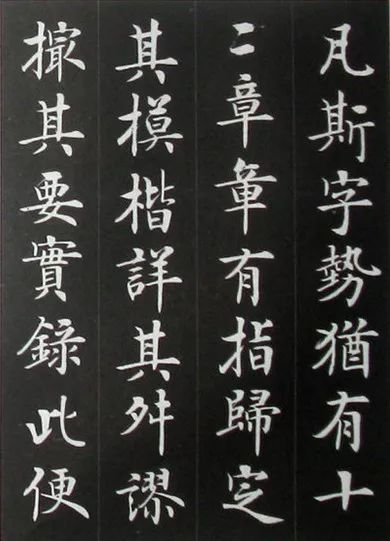 凡斯字勢猶有十
二章章有指歸定
其模楷詳其舛謬
撮其要實錄此便